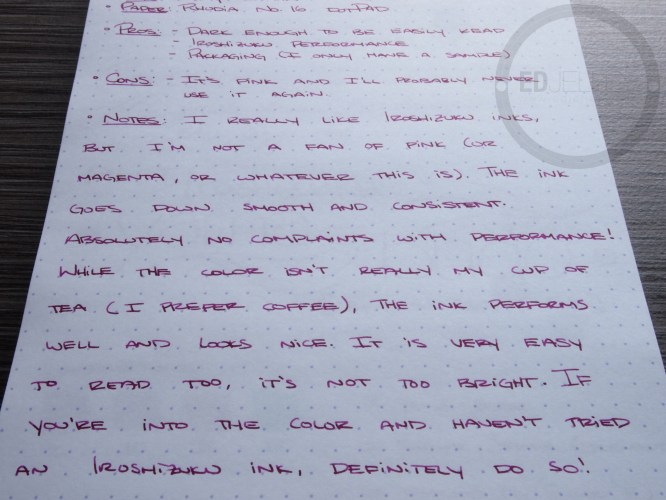 • PAPER: RHODIA No. 16 DOTPAD
• PROS: - DARK ENOUGH TO BE EASILY READ
- IROSHIZUKU PERFORMANCE
- PACKAGING (I ONLY HAVE A SAMPLE)
• CONS: - IT'S PINK AND I'LL PROBABLY NEVER
USE IT AGAIN.
• NOTES: I REALLY LIKE IROSHIZUKU INKS,
BUT I'M NOT A FAN OF PINK (OR
MAGENTA, OR WHATEVER THIS IS). THE INK
GOES DOWN SMOOTH AND CONSISTENT.
ABSOLUTELY NO COMPLAINTS WITH PERFORMANCE!
WHILE THE COLOR ISN'T REALLY MY CUP OF
TEA (I PREFER COFFEE), THE INK PERFORMS
WELL AND LOOKS NICE. IT IS VERY EASY
TO READ TOO, IT'S NOT TOO BRIGHT. IF
YOU'RE INTO THE COLOR AND HAVEN'T TRIED
AN IROSHIZUKU INK, DEFINITELY DO SO!